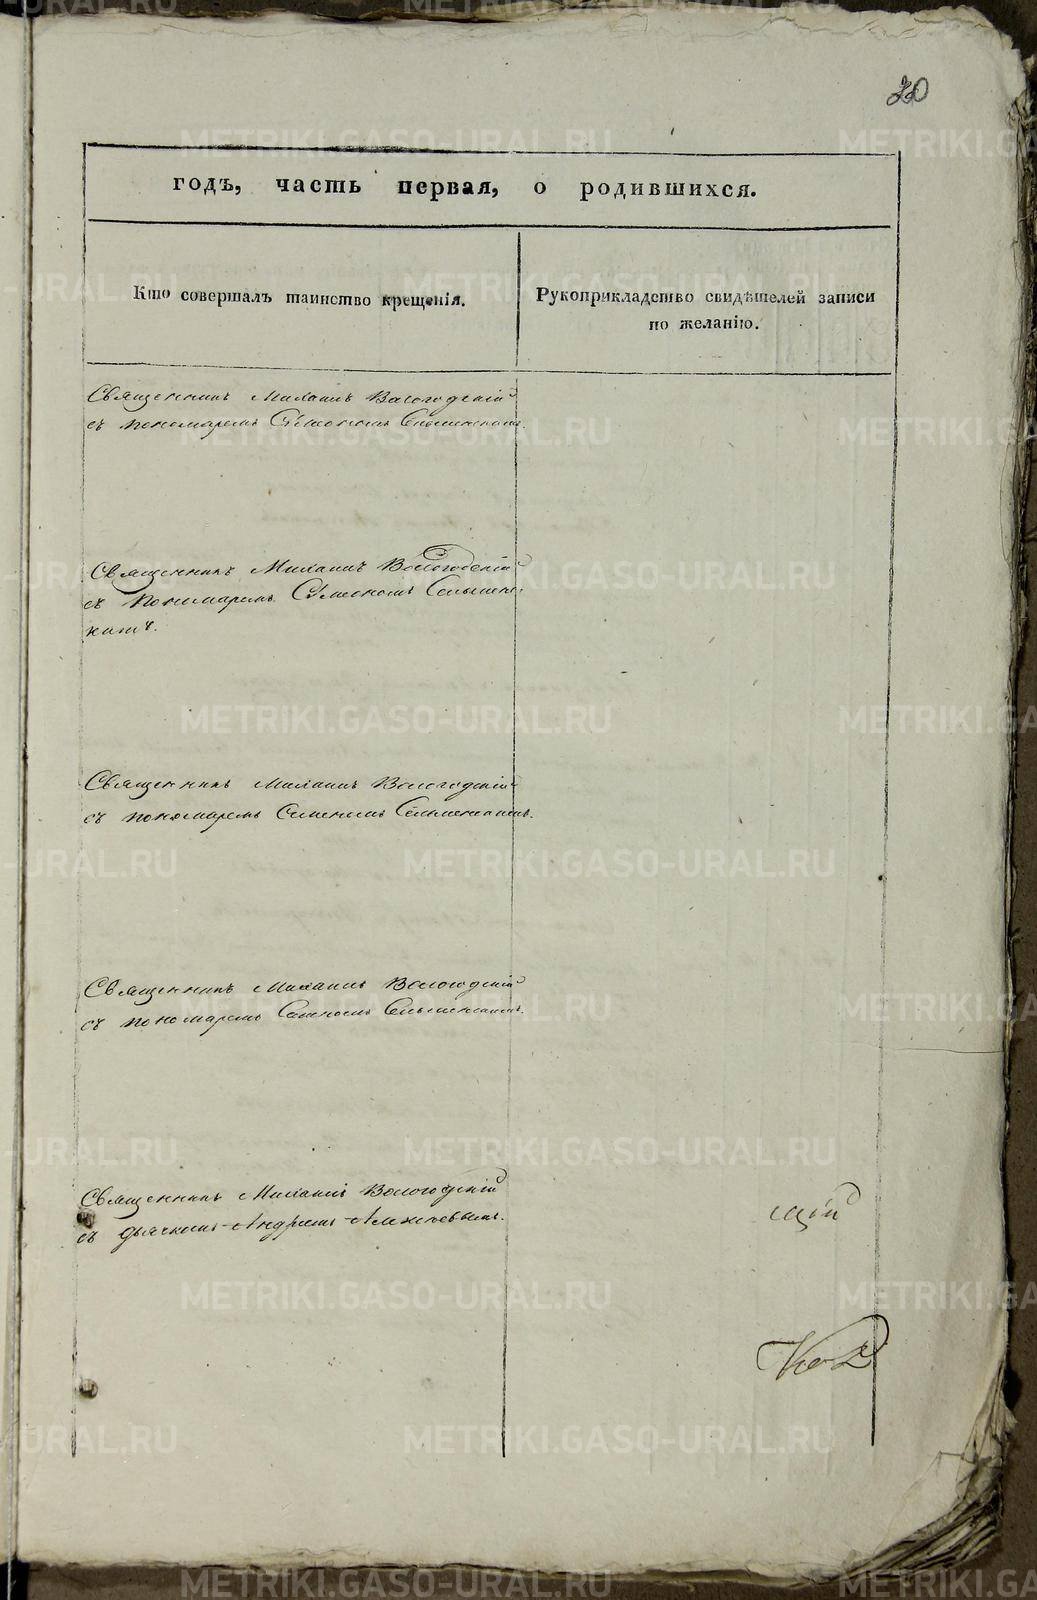 годъ, часть первая, о родившихся.
Кто совершалъ таинство крещенія.
Рукоприкладство свидѣтелей записи
по желанію.
Священникъ Михаилъ Вологодскій
съ пономаремъ Сѵмеономъ
Священникъ Михаилъ Вологодскій
съ пономаремъ Сѵмеономъ
Священникъ Михаилъ Вологодскій
съ пономаремъ Семеномъ
Священникъ Михаилъ Вологодскій
съ пономаремъ
Священникъ Михаилъ Вологодскій
съ дьячкомъ Андреемъ
щій
METRIKI.GASO-URAL.RU